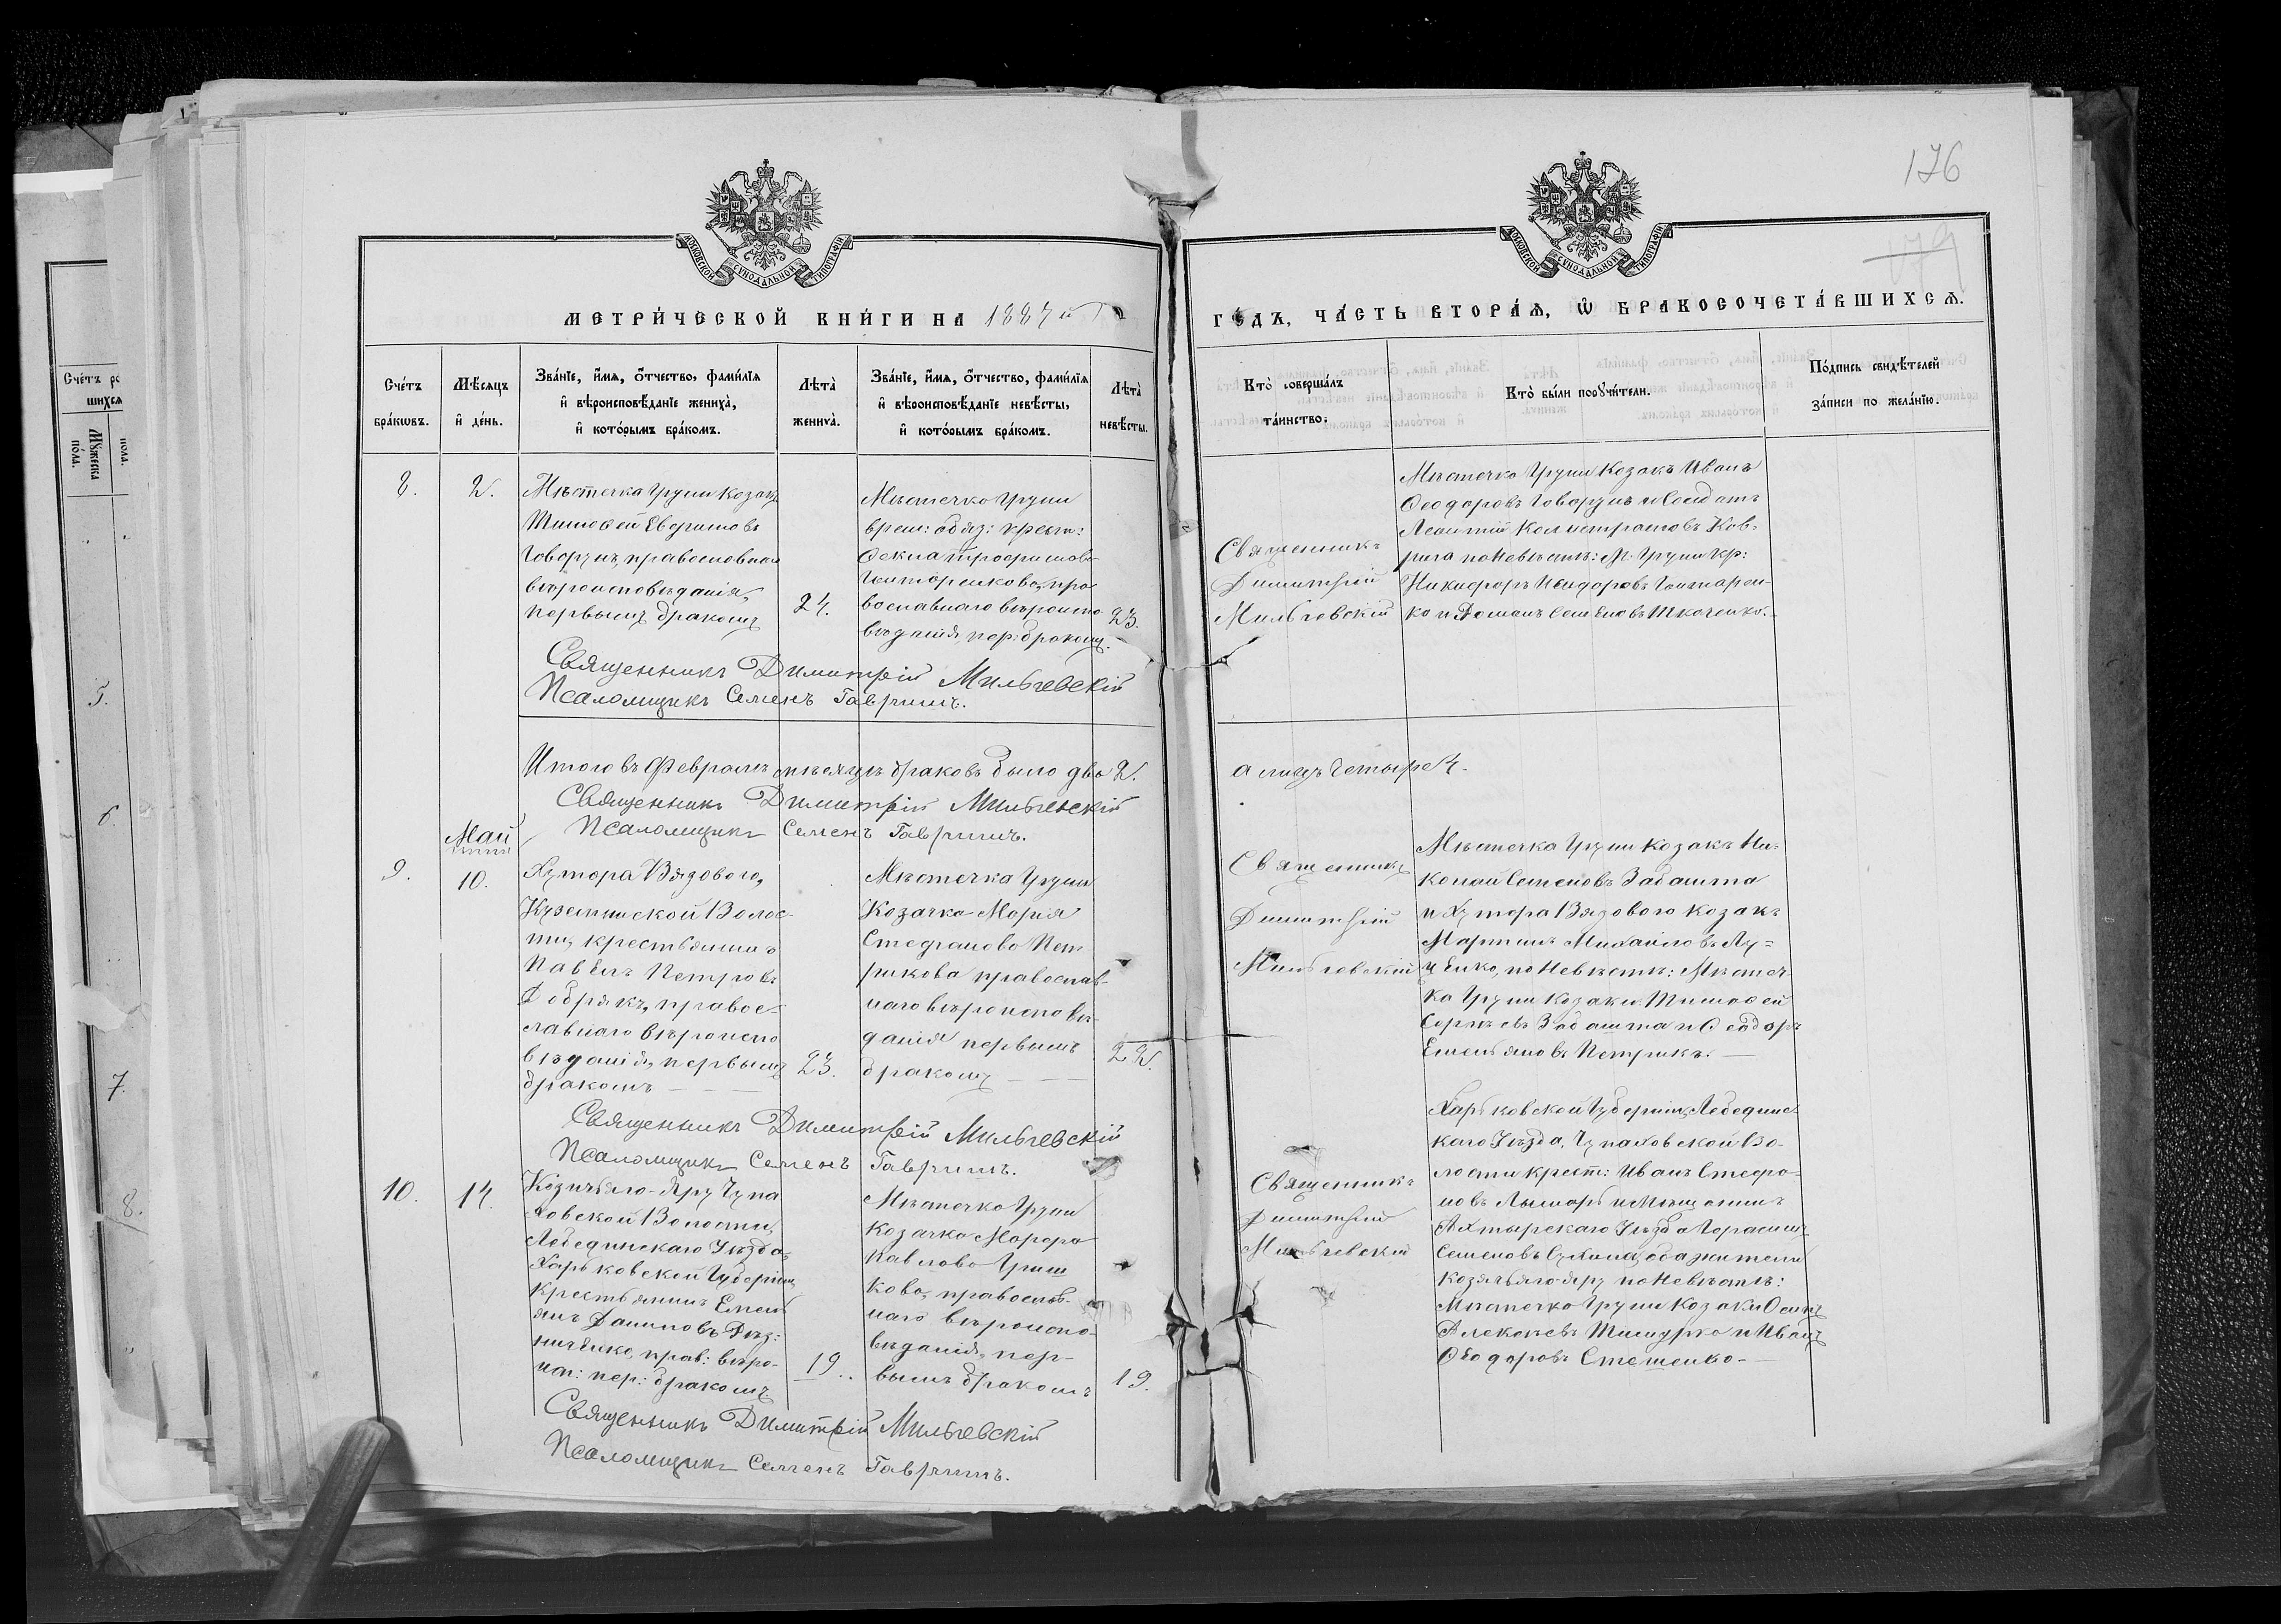 176
179
МЕТРИЧЕСКОЙ КНИГИ НА 1887й
ГОДЪ, ЧАСТЬ ВТОРАЯ, Ѡ БРАКОСОЧЕТАВШИХСЯ.
Счетъ браковъ.
Мѣсяцъ и день.
Званіе, имя, отчество, фамилія
и вѣроисповѣданіе жениха,
и которымъ бракомъ.
Лѣта жениха.
Званіе, имя, отчество, фамилія
и вѣроисповѣданіе невѣсты,
и которымъ бракомъ.
Лѣта невѣсты.
Кто совершалъ
таинство.
Кто были поручители.
Подпись свидѣтелей
записи по желанію.
8.
2.
Мѣстечка Груни козакъ
Тимоѳей Евфимовъ
Говорунъ, православнаго
вѣроисповѣданія,
первымъ бракомъ
24.
Мѣстечка Груни
врем: обяз: крест:
Ѳекла Трофимова
Гонторенкова, пра
вославнаго вѣроиспо
вѣданія, пер: бракомъ.
23.
Священникъ
Димитрій
Мильчевскій
Мѣстечка Груни Козакъ Иванъ
Ѳеодоровъ Говорунъ и Солдатъ
Леонтій Калистратовъ Ков-
рига по невѣстѣ: М. Груни кр:
Никифоръ Исидоровъ Гонтарен-
ко и Романъ Семеновъ Ткаченко.
Священникъ Димитрій Мильчевскій
Псаломщикъ Семенъ Гавришъ.
Итого въ Февралѣ мѣсяцѣ браковъ было два 2.
а лицъ четыре 4.
Священникъ Димитрій Мильчевскій
Псаломщикъ Семенъ Гавришъ.
Май
9.
10.
Хутора Вязоваго,
Куземинской Волос-
ти, крестьянинъ
Павелъ Петровъ
Добрякъ, правос-
лавнаго вѣроиспо
вѣданія, первымъ
бракомъ
23.
Мѣстечка Груни
Козачка Марія
Стефанова Пет-
рикова православ-
наго вѣроисповѣ-
данія первымъ
бракомъ
22.
Священникъ
Димитрій
Мильчевскій
Мѣстечка Груни козакъ Ни-
колай Семеновъ Забашта
и Хутора Вязоваго козакъ
Мартинъ Михайловъ Лу-
ценко, по невѣстѣ: Мѣстеч-
ка Груни козаки Тимоѳей
Сергѣевъ Забашта и Ѳеодоръ
Емельяновъ Петрикъ.
Священникъ Димитрій Мильчевскій
Псаломщикъ Семенъ Гавришъ.
10.
14.
Козѣчьяго-Яру Чупа
ховской Волости,
Лебединскаго Уѣзда
Харьковской Губерніи,
Крестьянинъ Емель
янъ Даниловъ Рѣз-
ниченко, прав: вѣро-
исп: пер: бракомъ
19.
Мѣстечка Груни
Козачка Марфа
Павлова Гриш
кова, православ-
наго вѣроиспо-
вѣданія, пер-
вымъ бракомъ
19.
Священникъ
Димитрій
Мильчевскій
Харьковской Губерніи, Лебединс
каго Уѣзда, Чупаховской Во-
лости крест: Иванъ Стефа-
новъ Лымарь и Мѣщанинъ
Ахтырскаго Уѣзда Герасимъ
Семеновъ Сухина, оба жители
Козячьяго-яру по невѣстѣ:
Мѣстечка Груни Козаки Осипъ
Алексѣевъ и Иванъ
Ѳеодоровъ Стешенко
Священникъ Димитрій Мильчевскій
Псаломщикъ Семенъ Гавришъ.